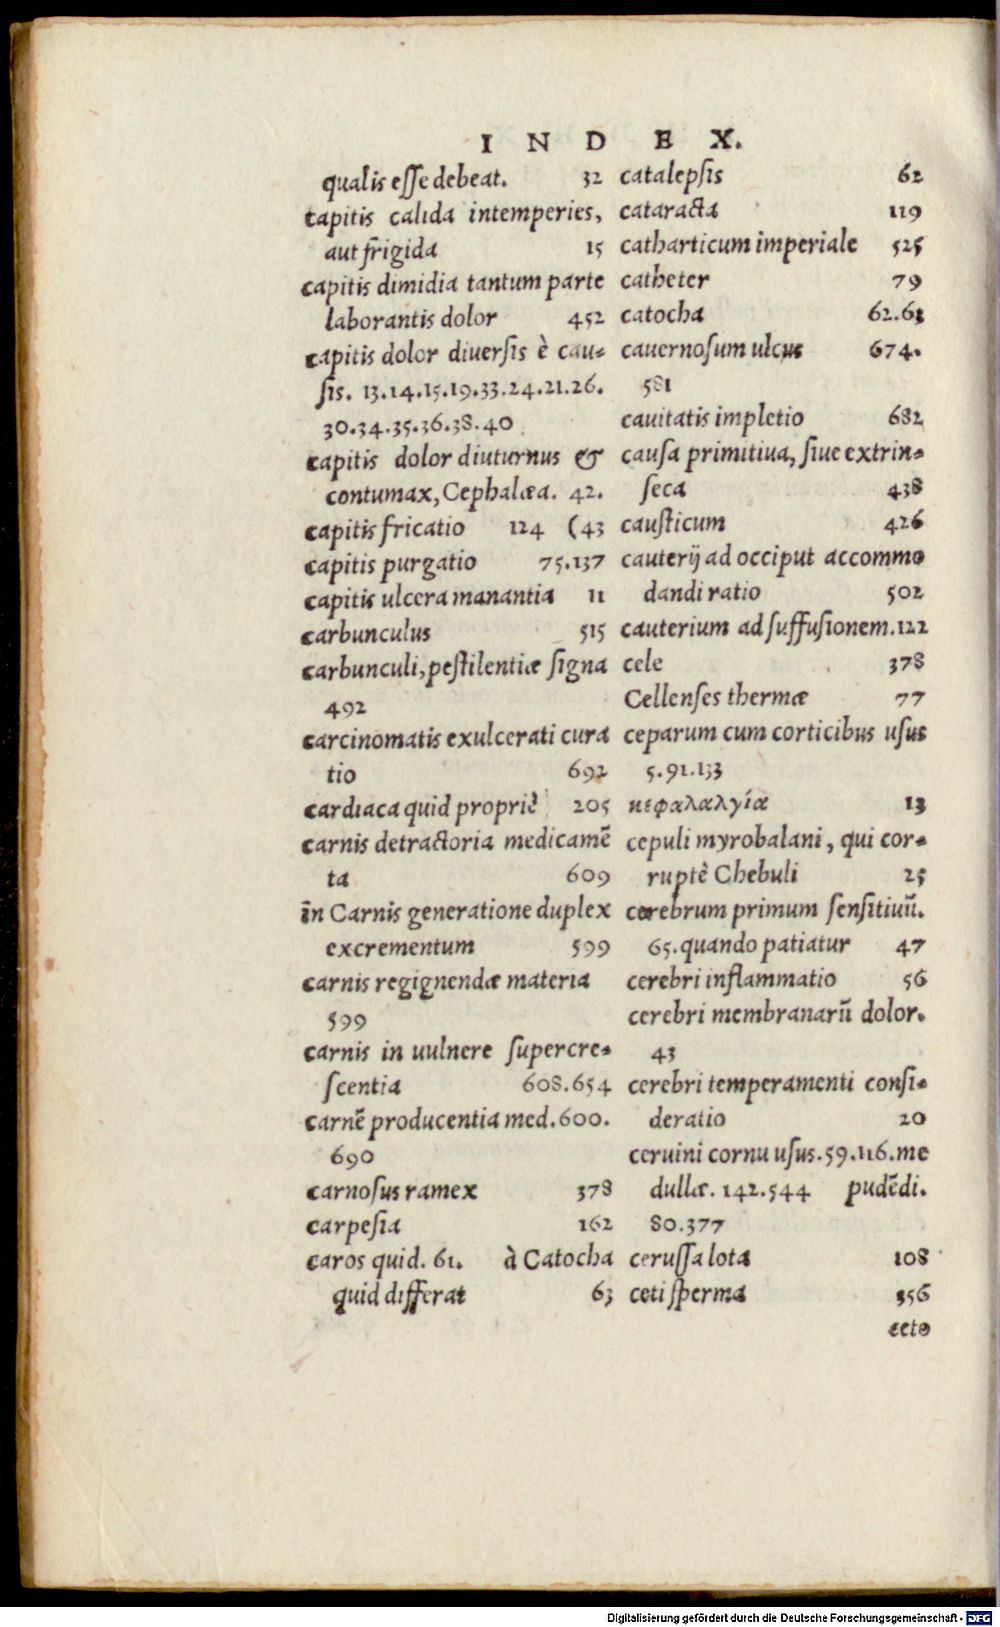 INDEX.
qualis esse debeat. 32
capitis calida intemperies,
aut frigida 15
capitis dimidia tantum parte
laborantis dolor 452
capitis dolor diuersis è cau-
sis. 13.14.15.19.33.24.21.26.
30.34.35.36.38.40
capitis dolor diuturnus &
contumax, Cephalæa. 42.
capitis fricatio 124 (43
capitis purgatio 75.137
capitis ulcera manantia 11
carbunculus 515
carbunculi, pestilentiæ signa
492
carcinomatis exulcerati cura
tio 692
cardiaca quid propriè 205
carnis detractoria medicamẽ
ta 609
in Carnis generatione duplex
excrementum 599
carnis regignendæ materia
599
carnis in uulnere supercre-
scentia 608.654
carnẽ producentia med. 600.
690
carnosus ramex 378
carpesia 162
caros quid. 61. à Catocha
quid differat 63
catalepsis 62
cataracta 119
catharticum imperiale 525
catheter 79
catocha 62.63
cauernosum ulcus 674.
581
cauitatis impletio 682
causa primitiua, siue extrin-
seca 438
causticum 426
cauterij ad occiput accommo
dandi ratio 502
cauterium ad suffusionem. 122
cele 378
Cellenses thermæ 77
ceparum cum corticibus usus
5.91.133
κεφαλαλγία 13
cepuli myrobalani, qui cor-
ruptè Chebuli 25
cerebrum primum sensitiuũ.
65. quando patiatur 47
cerebri inflammatio 56
cerebri membranarũ dolor.
43
cerebri temperamenti consi-
deratio 20
ceruini cornu usus. 59.116. me
dullæ. 142.544 pudẽdi.
80.377
cerussa lota 108
ceti sperma 356
ceto
Digitalisierung gefördert durch die Deutsche Forschungsgemeinschaft - DFG